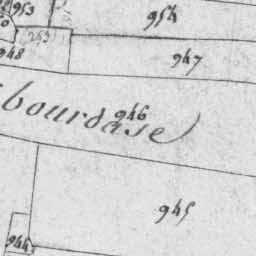 953
954
253
948
947
946
bourdase
945
944